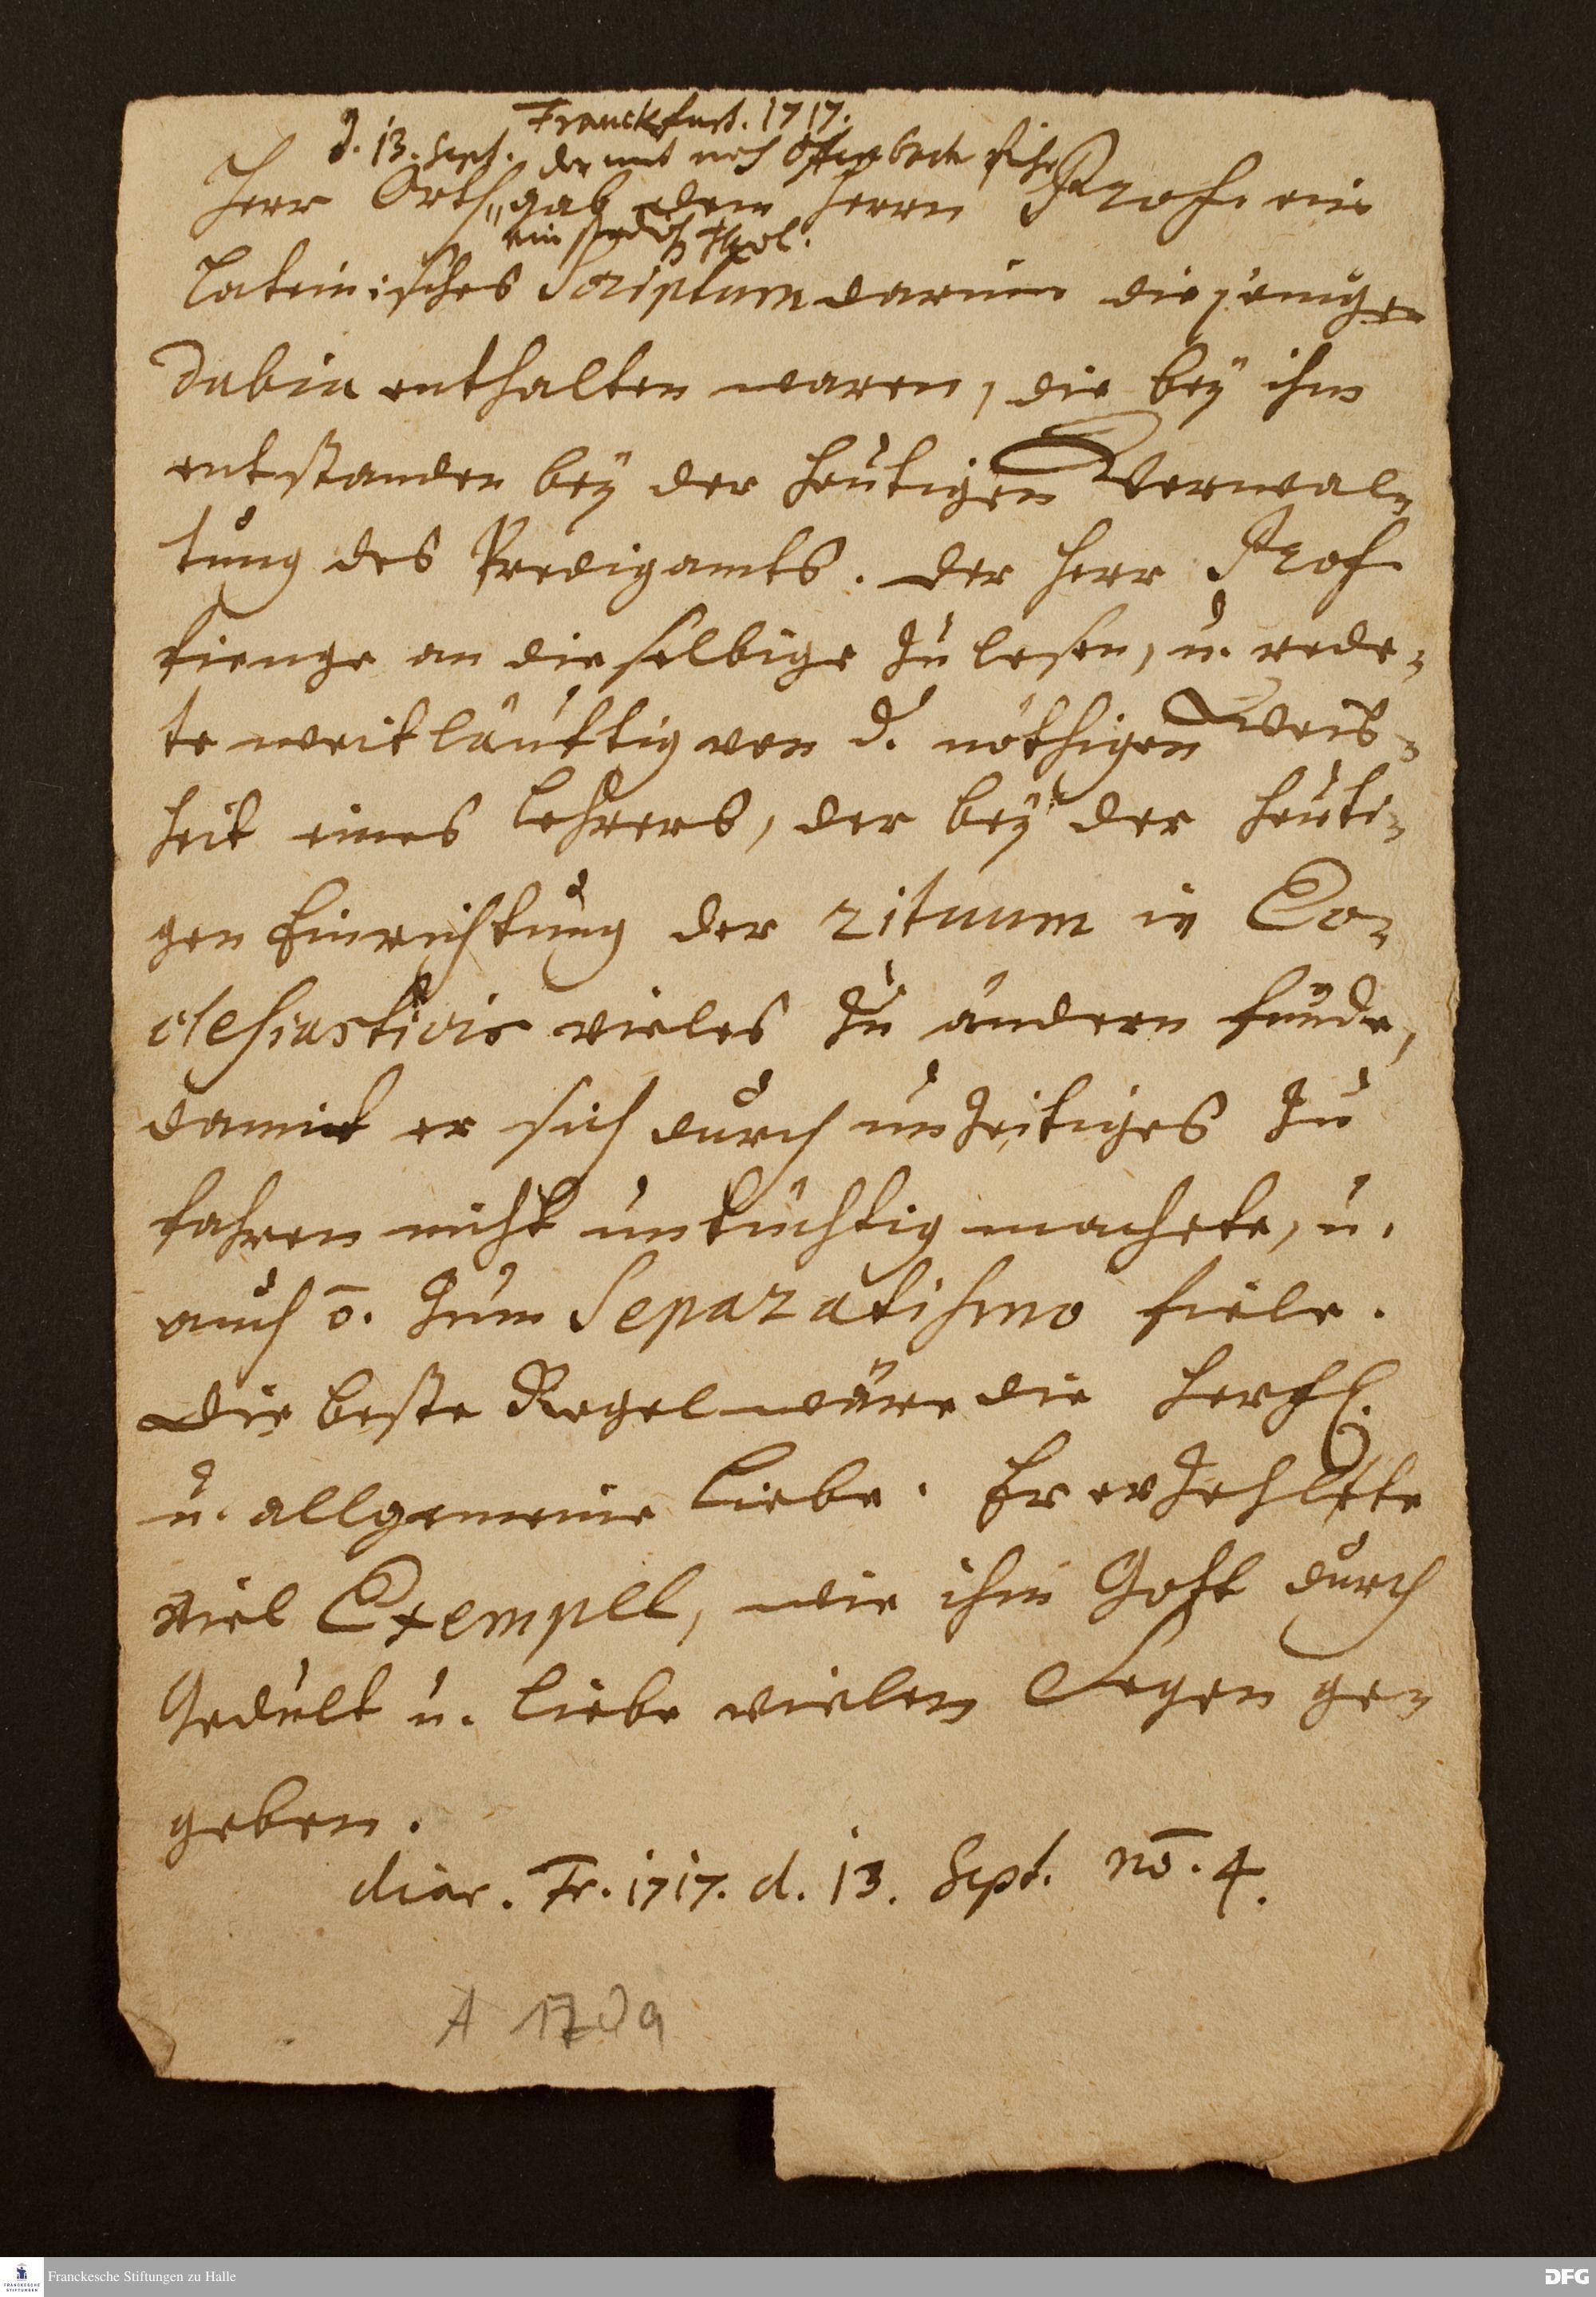 Franckfurt. 1717.
d. 13. Sept. der mit nach Offenbach fuhr
Herr Orth, gab dem Herrn Prof. ein
ein studios. Theol.
Lateinisches Scriptum darinn diejenigen
dubia enthalten waren, die bey ihm
entstanden bey der heutigen Verwal-
tung des Predigamts. Der Herr Prof.
fienge an dieselbige zu lesen, u. rede-
te weitläufftig von d. nöthigen Weis-
heit eines Lehrers, der bey der heuti-
gen Einrichtung der rituum in Ec-
clesiasticis vieles zu ändern fünde,
damit er sich durch unzeitiges zu
fahren nicht untüchtig machete, u.
auch o. zum Separatismo fiele.
Die beste Regel wäre die hertzl.
u. allgemeine Liebe. Er erzehlete
viel Exempel, wie ihm Gott durch
Gedult u. Liebe vielen Segen ge-
geben.
diar. Fr. 1717. d. 13. Sept. no. 4.
A 170a
Franckesche Stiftungen zu Halle
FRANCKESCHE STIFTUNGEN
DFG